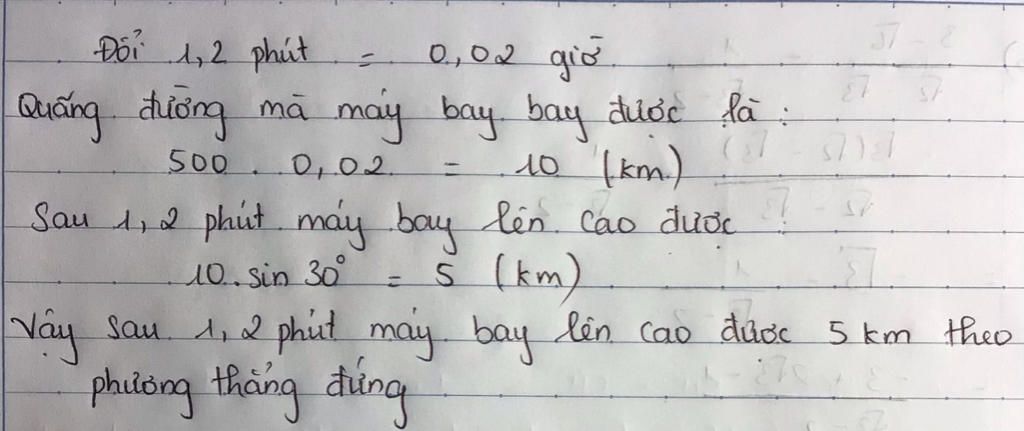 Đổi 1,2 phút = 0,02 giờ
Quãng đường mà máy bay bay được là :
500 . 0,02 = 10 (km)
Sau 1,2 phút máy bay lên cao được :
10. sin 30° = 5 (km)
Vậy sau 1,2 phút máy bay lên cao được 5 km theo
phương thẳng đứng